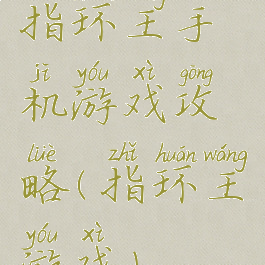 指环王手
jī yóu xì gōng
机游戏攻
lüè zhǐ huán wáng
略(指环王
yóu xì
游戏)